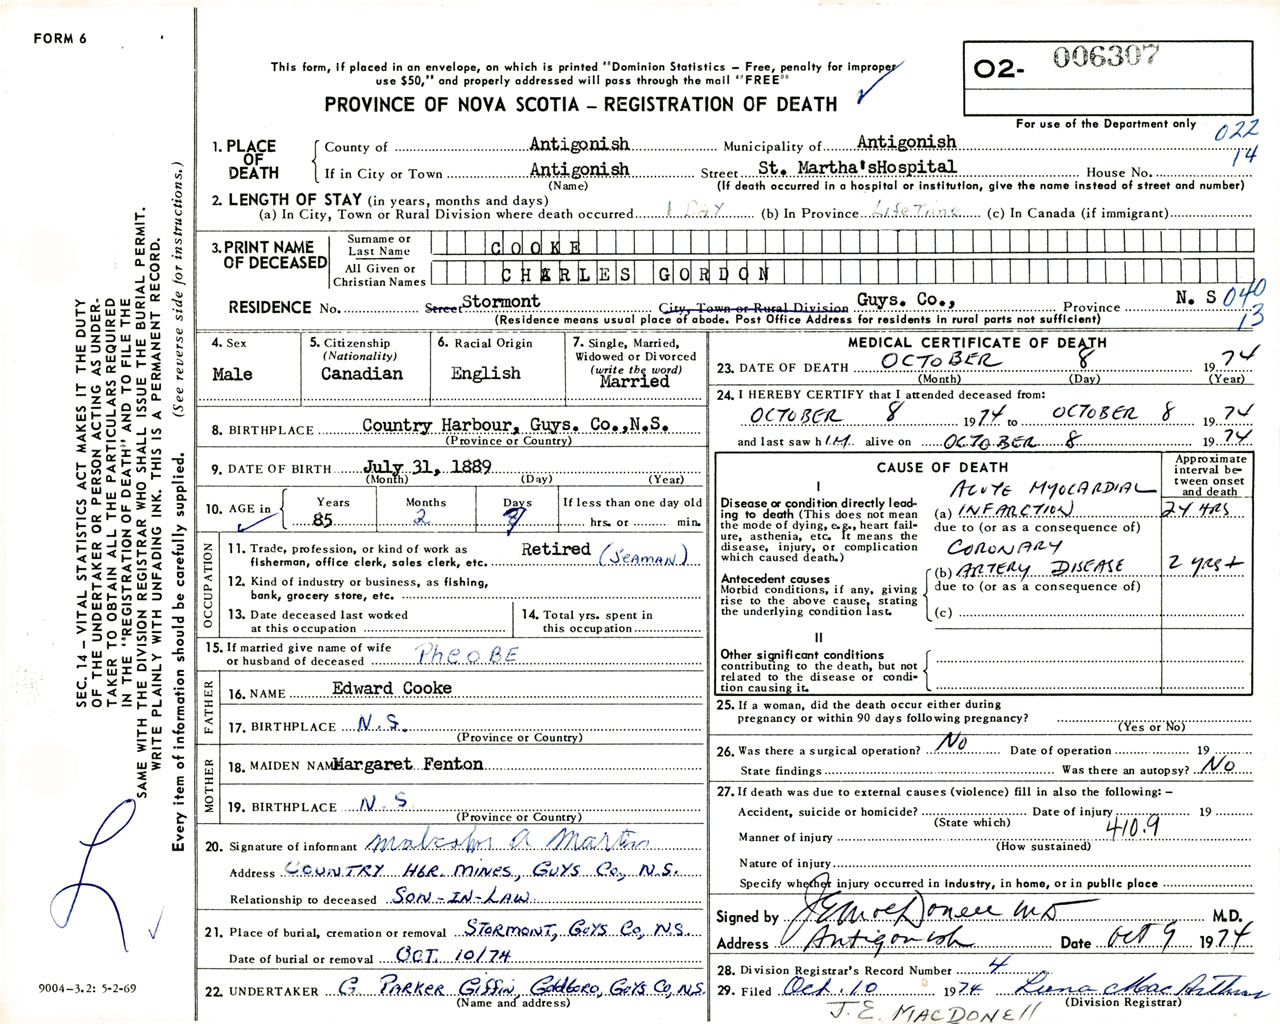 FORM 6
This form, if placed in an envelope, on which is printed "Dominion Statistics – Free, penalty for improper
use $50," and properly addressed will pass through the mail "FREE"
PROVINCE OF NOVA SCOTIA – REGISTRATION OF DEATH
O2- 006307
For use of the Department only
022
14
1. PLACE OF DEATH
County of Antigonish Municipality of Antigonish
If in City or Town Antigonish Street St. Martha'sHospital House No.
(Name) (If death occurred in a hospital or institution, give the name instead of street and number)
2. LENGTH OF STAY (in years, months and days)
(a) In City, Town or Rural Division where death occurred 1 DAY (b) In Province LifeTime (c) In Canada (if immigrant)
3. PRINT NAME OF DECEASED
Surname or Last Name COOKE
All Given or Christian Names CHARLES GORDON
RESIDENCE No. Street Stormont City, Town or Rural Division Guys. Co., Province N. S 040
13
(Residence means usual place of abode. Post Office Address for residents in rural parts not sufficient)
4. Sex
Male
5. Citizenship
(Nationality)
Canadian
6. Racial Origin
English
7. Single, Married,
Widowed or Divorced
(write the word)
Married
8. BIRTHPLACE Country Harbour, Guys. Co.,N.S.
(Province or Country)
9. DATE OF BIRTH July 31, 1889
(Month) (Day) (Year)
10. AGE in
Years Months Days If less than one day old
85 2 hrs. or min.
OCCUPATION
11. Trade, profession, or kind of work as
fisherman, office clerk, sales clerk, etc. Retired (SEAMAN)
12. Kind of industry or business, as fishing,
bank, grocery store, etc.
13. Date deceased last worked
at this occupation
14. Total yrs. spent in
this occupation
15. If married give name of wife
or husband of deceased PheOBE
FATHER
16. NAME Edward Cooke
17. BIRTHPLACE N.S.
(Province or Country)
MOTHER
18. MAIDEN NAME Margaret Fenton
19. BIRTHPLACE N.S
(Province or Country)
20. Signature of informant Malcolm A Martin
Address COUNTRY HBR. MINES, GUYS CO., N.S.
Relationship to deceased SON-IN-LAW
21. Place of burial, cremation or removal STORMONT, GUYS CO, N.S.
Date of burial or removal OCT. 10/74
22. UNDERTAKER G PARKER GIFFIN, GOLDBORO, GUYS CO, N.S.
(Name and address)
MEDICAL CERTIFICATE OF DEATH
23. DATE OF DEATH OCTOBER 8 1974
(Month) (Day) (Year)
24. I HEREBY CERTIFY that I attended deceased from:
OCTOBER 8 1974 to OCTOBER 8 1974
and last saw hIM alive on OCTOBER 8 1974
CAUSE OF DEATH
Approximate
interval be-
tween onset
and death
I
Disease or condition directly lead-
ing to death (This does not mean
the mode of dying, e.g., heart fail-
ure, asthenia, etc. It means the
disease, injury, or complication
which caused death.)
ACUTE MYOCARDIAL
(a) INFARCTION 24 HRS
due to (or as a consequence of)
CORONARY
(b) ARTERY DISEASE 2 yrs+
due to (or as a consequence of)
(c)
Antecedent causes
Morbid conditions, if any, giving
rise to the above cause, stating
the underlying condition last.
II
Other significant conditions
contributing to the death, but not
related to the disease or condi-
tion causing it.
25. If a woman, did the death occur either during
pregnancy or within 90 days following pregnancy?
(Yes or No)
26. Was there a surgical operation? No Date of operation 19
State findings Was there an autopsy? No
27. If death was due to external causes (violence) fill in also the following: –
Accident, suicide or homicide? Date of injury 19
(State which) 410.9
Manner of injury
(How sustained)
Nature of injury
Specify whether injury occurred in industry, in home, or in public place
Signed by J E MacDonell MD M.D.
Address Antigonish Date Oct 9 1974
28. Division Registrar's Record Number 4
29. Filed Oct. 10 1974 Lena MacArthur
(Division Registrar)
J. E. MACDONELL
SEC. 14 – VITAL STATISTICS ACT MAKES IT THE DUTY
OF THE UNDERTAKER OR PERSON ACTING AS UNDER-
TAKER TO OBTAIN ALL THE PARTICULARS REQUIRED
IN THE "REGISTRATION OF DEATH" AND TO FILE THE
SAME WITH THE DIVISION REGISTRAR WHO SHALL ISSUE THE BURIAL PERMIT.
WRITE PLAINLY WITH UNFADING INK. THIS IS A PERMANENT RECORD.
Every item of information should be carefully supplied. (See reverse side for instructions.)
9004-3.2: 5-2-69